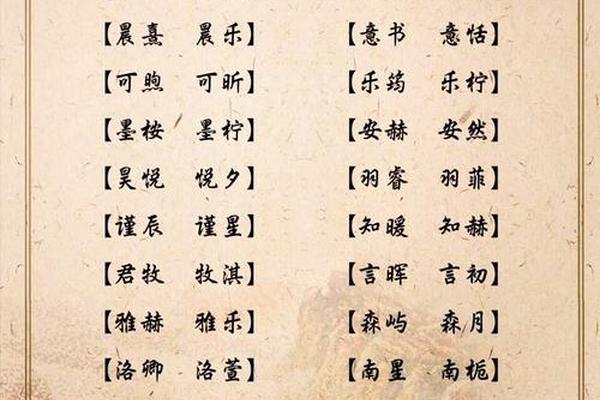 【晨熹 晨乐】 【意书 意恬】
【可煦 可昕】 【乐筠 乐柠】
【墨桉 墨柠】 【安赫 安然】
【昊悦 悦夕】 【羽睿 羽菲】
【谨辰 谨星】 【知暖 知赫】
【君牧 牧淇】 【言晖 言初】
【雅赫 雅乐】 【森屿 森月】
【洛卿 洛萱】 【南星 南栀】